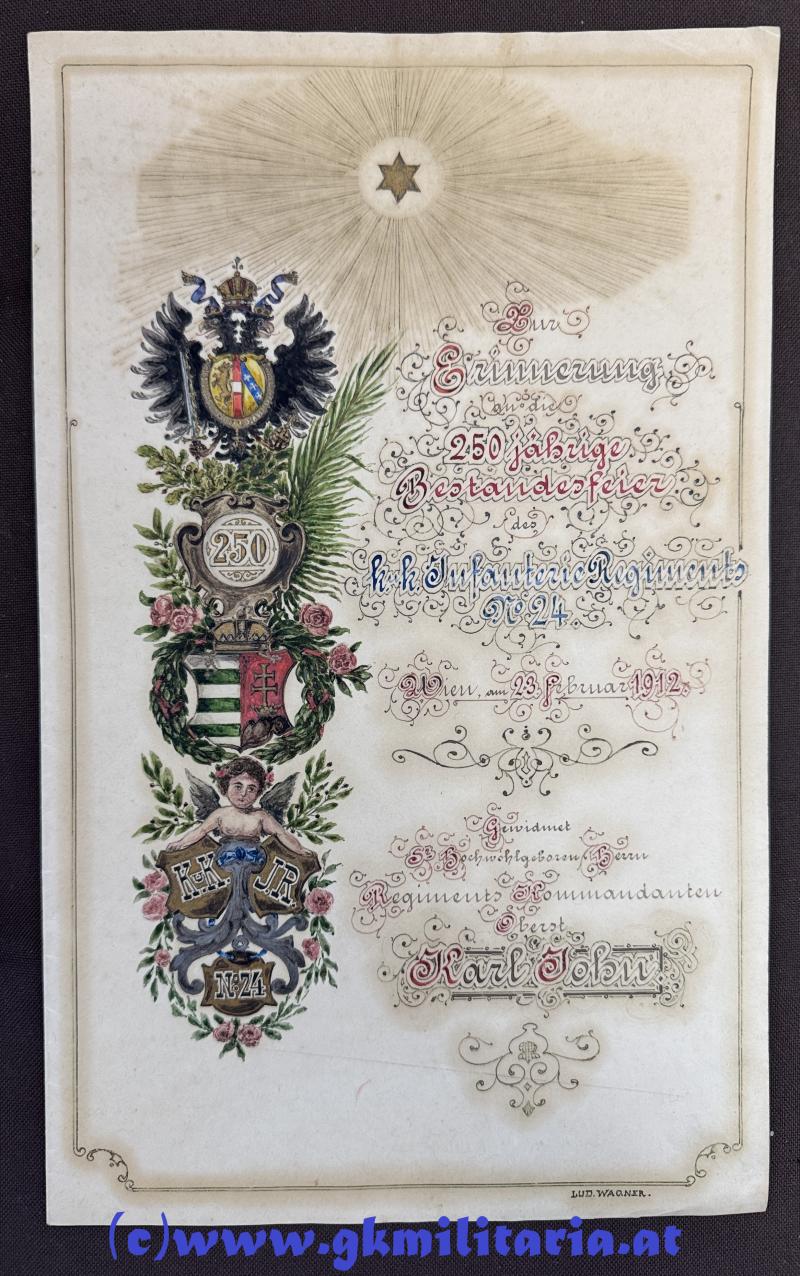 Zur
Erinnerung
an die
250 jährige
Bestandesfeier
des
k.u.k. Infanterie Regiments
No 24.
Wien, am 23. Februar 1912.
Gewidmet
Sr Hochwohlgeboren Herrn
Regiments Kommandanten
Oberst
Karl John.
250
K.u.K. J.R.
No 24
LUD. WAGNER.
(c)www.gkmilitaria.at